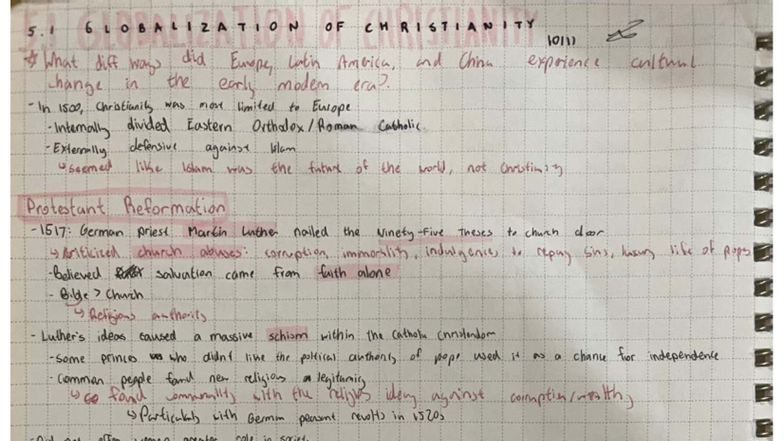 5.1 GLOBALIZATION OF CHRISTIANITY
10/11
What diff ways did Europe, Latin America, and China experience cultural
change in the early modern era?
- In 1500, Christianity was most limited to Europe
- Internally divided Eastern Orthodox/Roman Catholic
- Externally defensive against Islam
↳ seemed like Islam was the future of the world, not Christianity
Protestant Reformation
- 1517: German priest Martin Luther nailed the Ninety-Five Theses to church door
↳ Criticized church abuses: corruption, immorality, indulgences to repay sins, luxury life of popes
- Believed salvation came from faith alone
- Bible > Church
↳ Religious authority
- Luther's ideas caused a massive schism within the Catholic Christendom
- some princes who didn't like the political authority of pope used it as a chance for independence
- Common people found new religious legitimacy
↳ found commonality with the religious ideas against corruption/wealth
↳ Particularly with German peasant revolts in 1520s
- Did not offer women greater role in